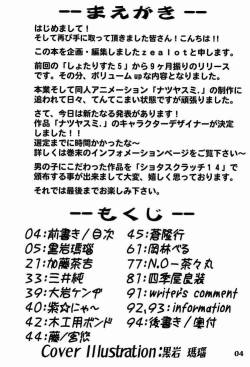 --まえがき--
はじめまして！
そして再び手に取って頂きました皆さん！こんちは！！
この本を企画・編集しましたｚｅａｌｏｔと申します。
前回の「しょたりすた５」から９ヶ月振りのリリース
です。その分、ボリュームupな内容となりました。
本業そして同人アニメーション「ナツヤスミ.」の制作に
追われて日々、てんてこまい状態ですが頑張りました。
さて、今日は新たなる発表があります！
作品「ナツヤスミ.」のキャラクターデザイナーが決定
しました！！
選定までに時間かかったな～
詳しくは巻末のインフォメーションページをご覧下さい～
男の子にこだわった作品を「ショタスクラッチ１４」で
頒布する事が出来まして大変、嬉しく思っております。
それでは最後までお楽しみ下さい。
--もくじ--
04:前書き/目次
05:黒岩瑪瑙
21:加藤茶吉
33:三井純
39:大岩ケンヂ
40:紫☆にゃ～
42:木工用ボンド
44:藤/宮悠
45:蒼隆行
61:岡林べる
77:N.O-茶々丸
81:四季屋良装
91:writer's comment
92,93:information
94:後書き/奥付
Cover Illustration:黒岩 瑪瑙
04